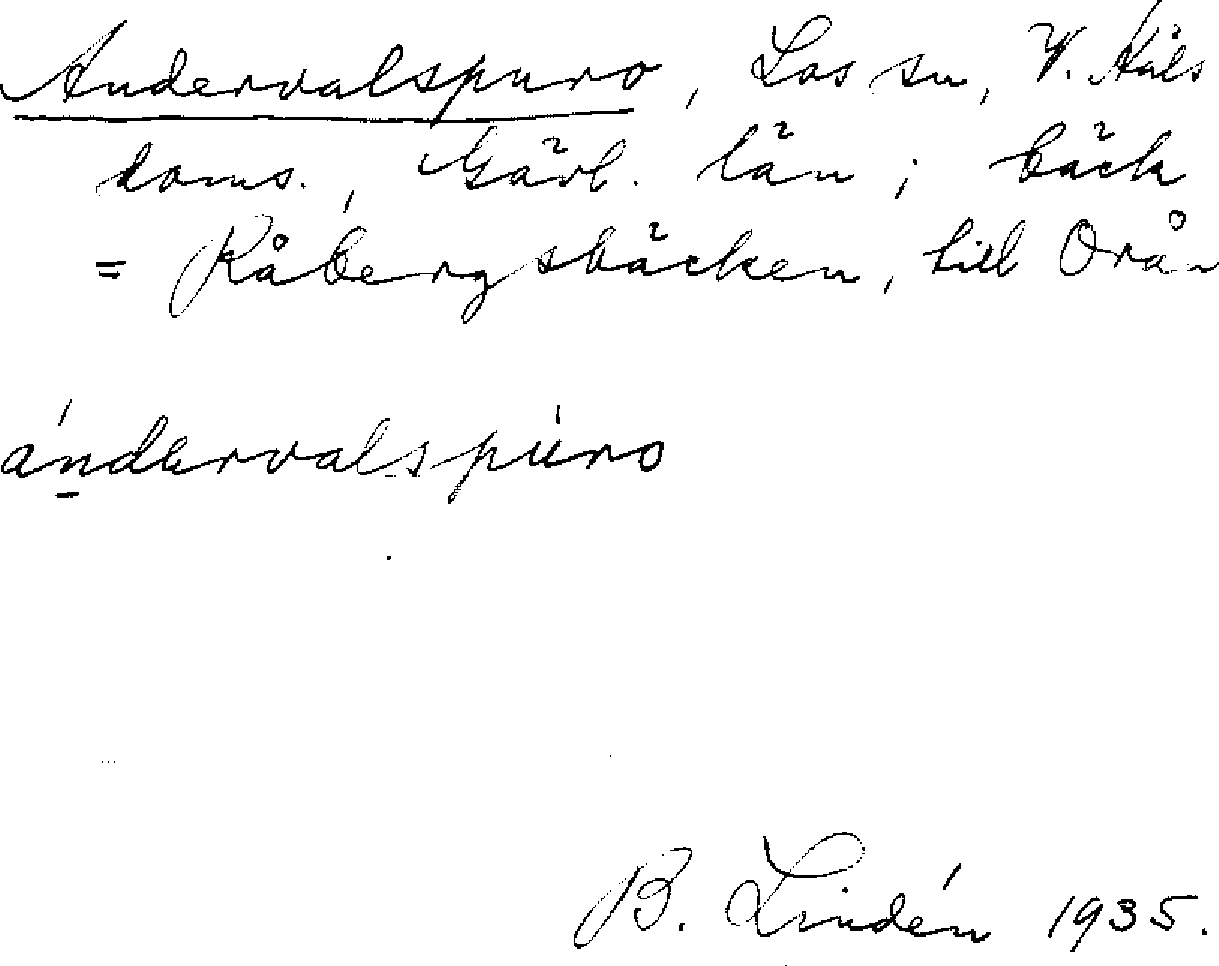 Andervalspuro, Los sn, V. Häls
doms., Gävl. län; bäck
= Råbergsbäcken, till Orån
ándervalspúro
B. Lindén 1935.